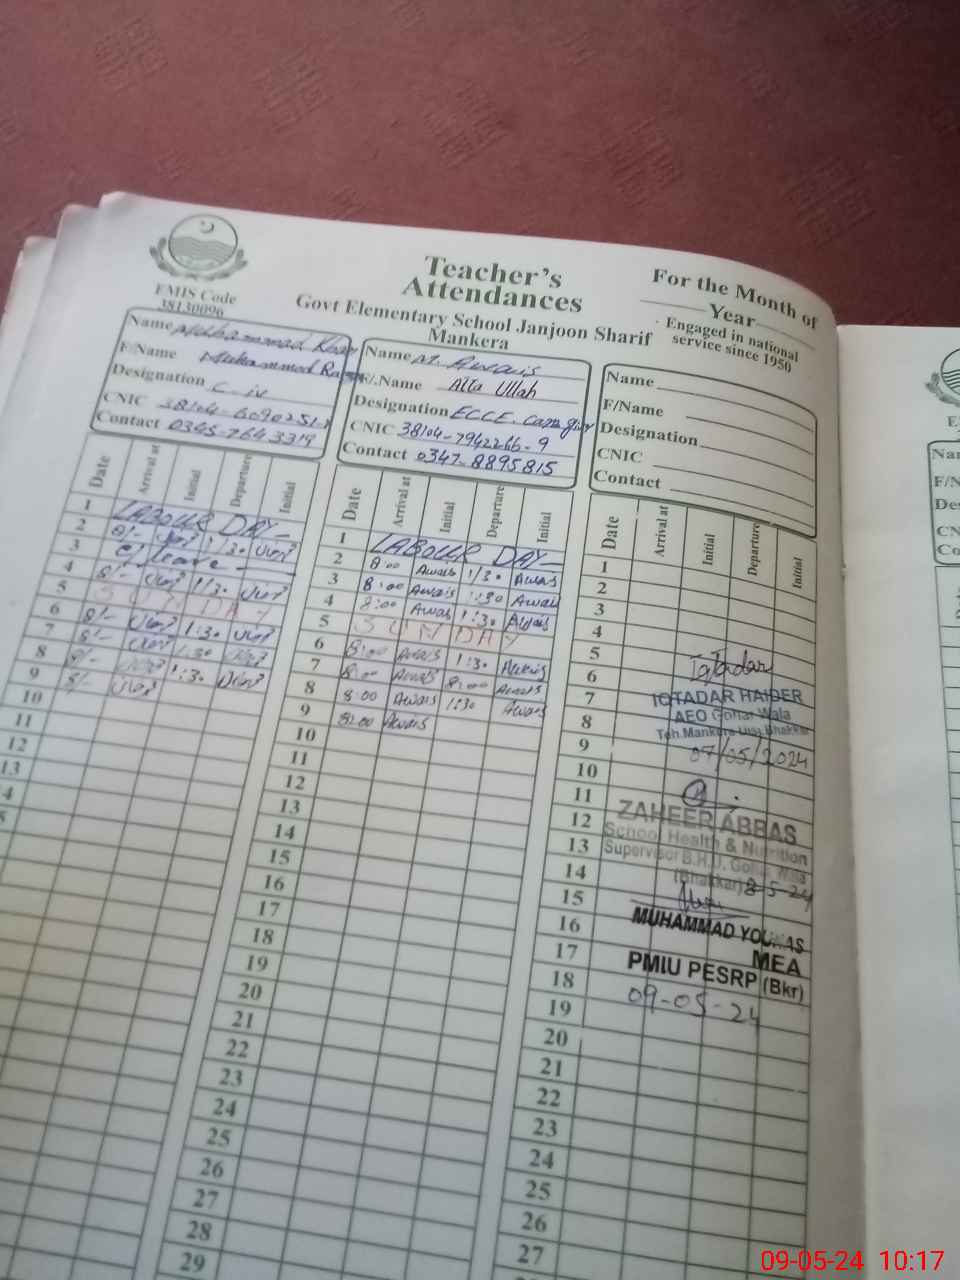 Teacher's
Attendances
For the Month of
Year
EMIS Code
38130096
Govt Elementary School Janjoon Sharif
Mankera
Engaged in national
service since 1950
Name Muhammad
F/Name Muhammad
Designation C-iv
CNIC 38104-6090251-1
Contact 0345-7643319
Date Arrival at Initial Departure Initial
1 LABOUR DAY
2 8/- 1:30
3 C/leave
4 8/- 1:30
5 SUNDAY
6 8/- 1:30
7 8/- 1:30
8 8/- 1:30
9 8/-
10
11
12
13
Name M. Awais
F/.Name Atta Ullah
Designation ECCE. Care giver
CNIC 38104-7942266-9
Contact 0347-8895815
Date Arrival at Initial Departure Initial
1 LABOUR DAY
2 8:00 Awais 1:30 Awais
3 8:00 Awais 1:30 Awais
4 8:00 Awais 1:30 Awais
5 SUNDAY
6 8:00 Awais 1:30 Awais
7 8:00 Awais 8:00 Awais
8 8:00 Awais 1:30 Awais
9 8:00 Awais
10
11
12
13
14
15
16
17
18
19
20
21
22
23
24
25
26
27
28
29
Name
F/Name
Designation
CNIC
Contact
Date Arrival at Initial Departure Initial
1
2
3
4
5
6
7
8
9
10
11
12
13
14
15
16
17
18
19
20
21
22
23
24
25
26
27
Iqtadar
IQTADAR HAIDER
AEO Gohar Wala
Teh.Mankera Dist Bhakkar
07/05/2024
ZAHEER ABBAS
School Health & Nutrition
Supervisor B.H.U. Gohar Wala
(Bhakkar) 8-5-24
MUHAMMAD YOUNAS
MEA
PMIU PESRP (Bkr)
09-05-24
09-05-24 10:17